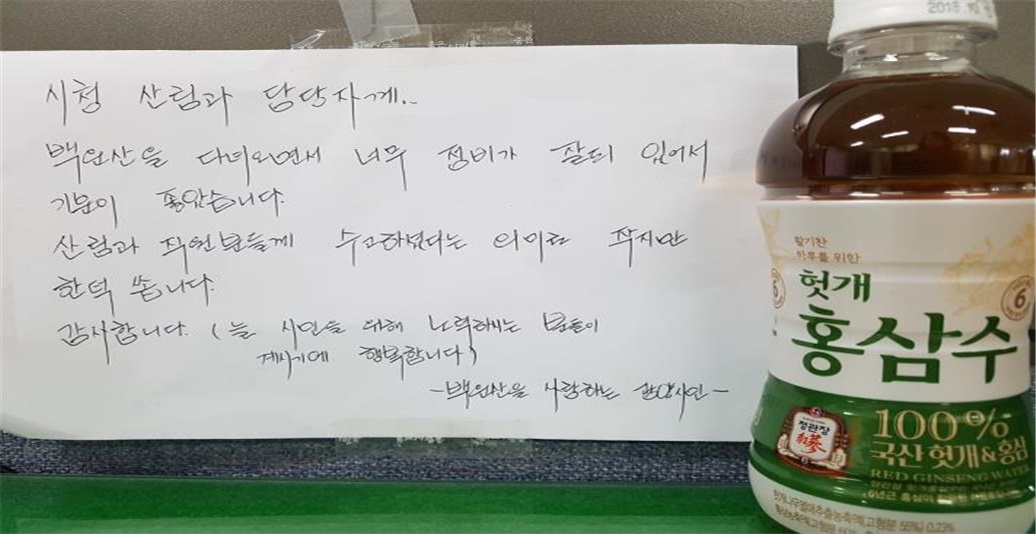 시청 산림과 담당자께..
백운산을 다녀오면서 너무 정비가 잘되 있어서
기분이 좋았습니다.
산림과 직원분들께 수고하셨다는 의미로 작지만
한턱 쏩니다.
감사합니다. (늘 시민을 위해 노력하시는 분들이
계시기에 행복합니다)
-백운산을 사랑하는 광양시민-
2018
활기찬
하루를 위한
헛개
홍삼수
6
6
정관장
100%
국산 헛개&홍삼
RED GINSENG WATER
6년근 홍삼
헛개나무열매추출농축액(고형분 55%) 0.23%